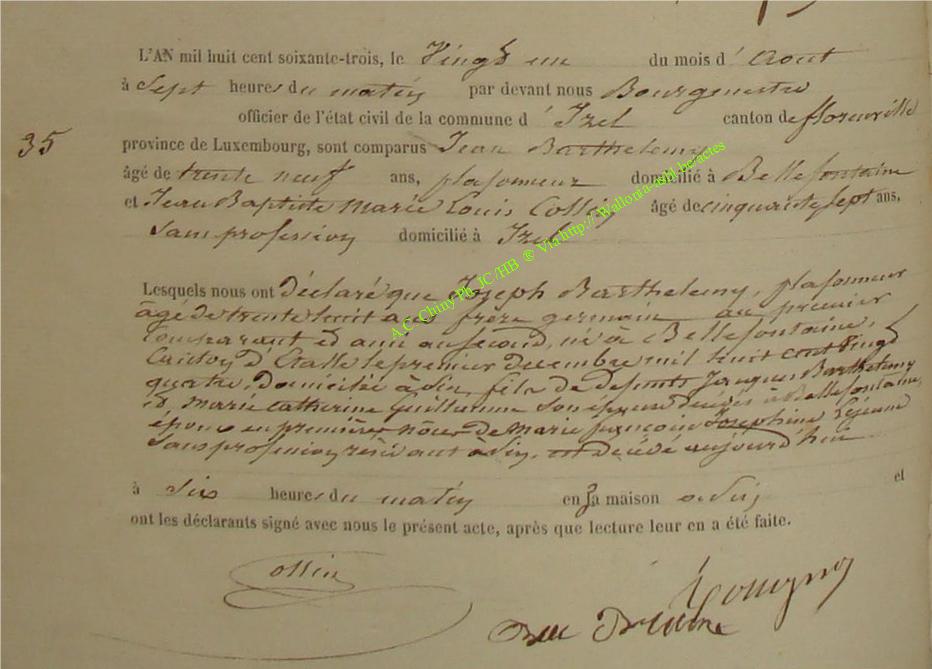 L'AN mil huit cent soixante-trois, le Vingt un du mois d' Aout
à Sept heures du matin par devant nous Bourgmestre
officier de l'état civil de la commune d' Izel canton de florenville
35
province de Luxembourg, sont comparus Jean Barthelemy
âgé de trente neuf ans, plafonneur domicilié à Bellefontaine
et Jean Baptiste Marie Louis Collin âgé de cinquante sept ans,
Sans profession domicilié à Izel
A.C. Chiny Ph. JC/HB ® Via http:// Wallonia-asbl.be/actes
Lesquels nous ont déclaré que Joseph Barthelemy, plafonneur
âgé de trente huit ans frère germain au premier
Comparant et ami au second, né à Bellefontaine,
Canton d'Etalle le premier decembre mil huit cent vingt
quatre, domicilié à fils de defunts Jacques Barthelemy
et Marie Catherine Guillaume son épouse décédés à Bellefontaine,
époux en premières nôces de Marie Josephine Lejeune
Sans profession résidant à est décédé aujourd'hui
à Six heures du matin en sa maison et
ont les déclarants signé avec nous le présent acte, après que lecture leur en a été faite.